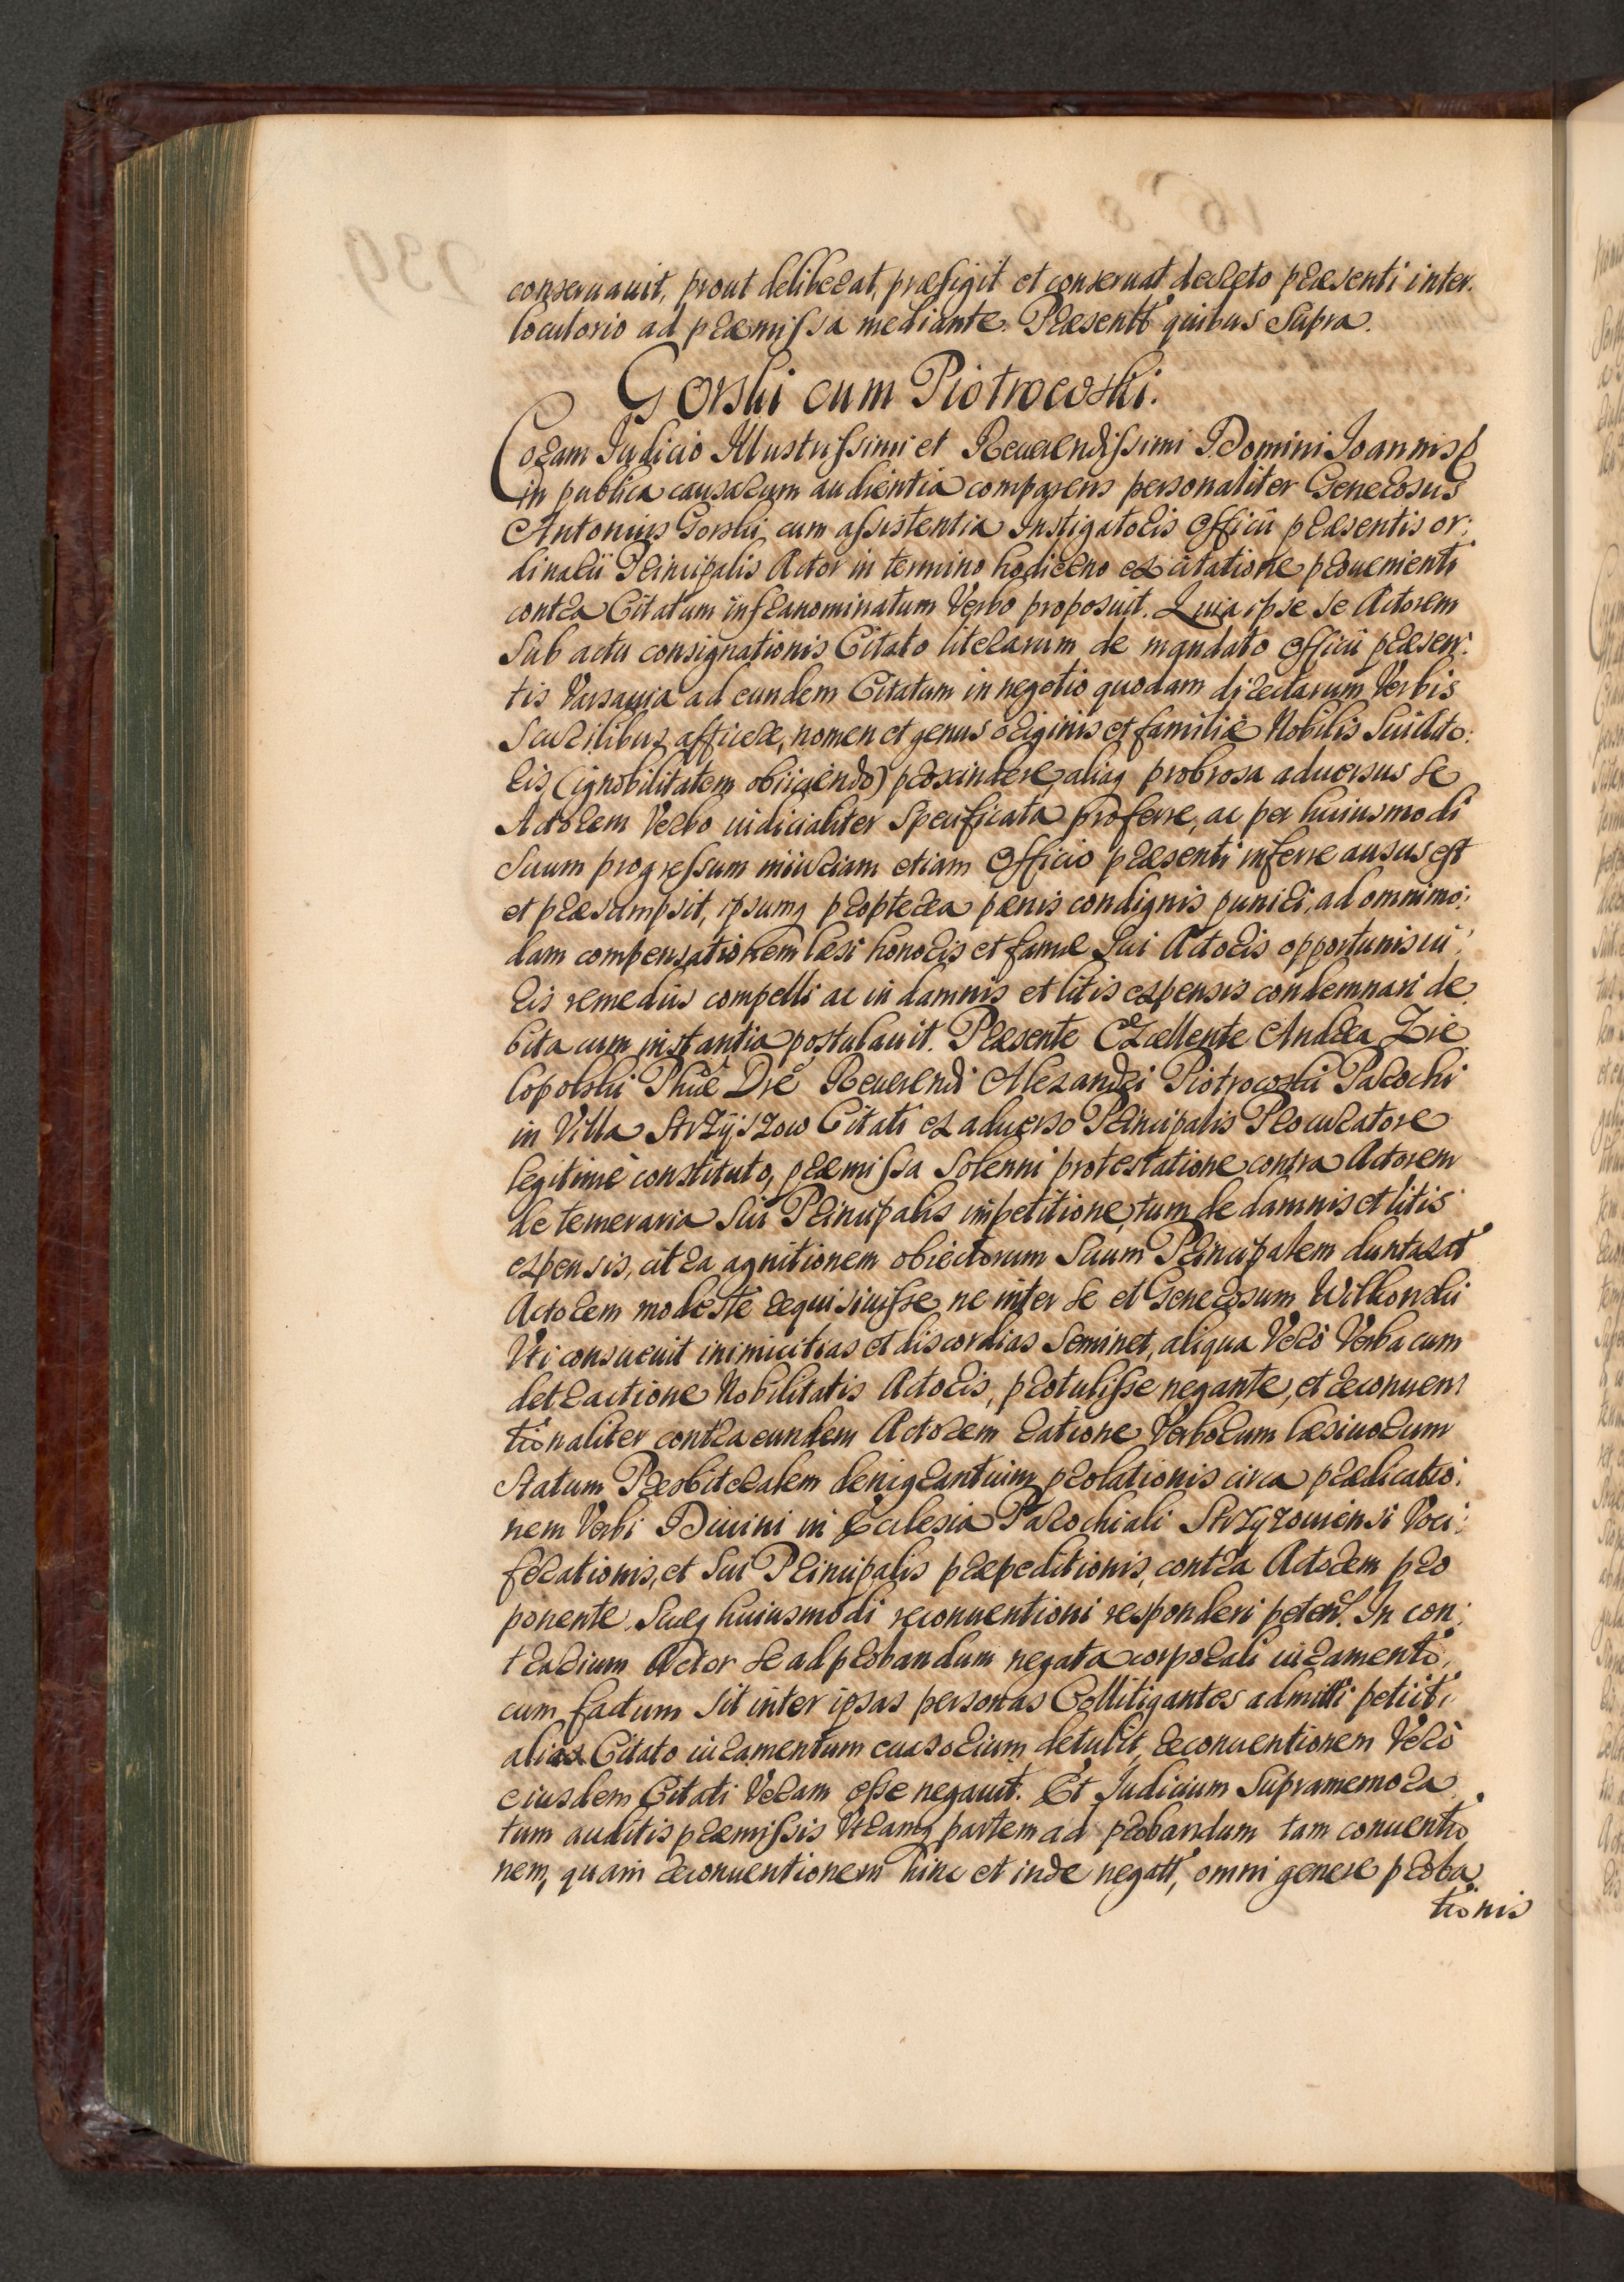 conseruauit, prout deliberat, præfigit et conseruat decreto præsenti inter:
locutorio ad præmissa mediante. Præsentt' quibus Supra.
Gorski cum Piotrowski.
Coram Iudicio Illustrissimi et Reuerendissimi Domini Ioannis
in publica causarum audientia comparens personaliter Generosus
Antonius Gorski cum assistentia Instigatoris Officii præsentis or:
dinarii Principalis Actor in termino hodierno ex citatione prouenienti
contra Citatum infranominatum Verbo proposuit. Quia ipse se Actorem
Sub actu consignationis Citato literarum de mandato Officii præsen:
tis Varsauia ad eundem Citatum in negotio quodam directarum Verbis
Scurilibus afficere, nomen et genus originis et familiæ Nobilis Sui Acto:
ris, (ignobilitatem obiiciendo) proscindere, aliaq probrosa aduersus se
Actorem Verbo iudicialiter Specificata proferre, ac per huiusmodi
Suum progressum iniuriam etiam Officio præsenti inferre ausus est
et præsumpsit, ipsumq propterea pænis condignis puniri, ad omnimo:
dam compensationem læsi honoris et famæ Sui Actoris opportunis iu:
ris remediis compelli ac in damnis et litis expensis condemnari de
bita cum instantia postulauit. Præsente Excellente Andrea Zie
lopolski Phiæ Dre Reuerendi Alexandri Piotrowski Parochi
in Villa Strzyszow Citati ex aduerso Principalis Procuratore
legitimè constituto, præmissa Solenni protestatione contra Actorem
de temeraria Sui Principalis impetitione, tum de damnis et litis
expensis, citra agnitionem obiectorum Suum Principalem duntaxat
Actorem modestè requisiuisse, ne inter Se et Generosum Wilkonski
Vti consueuit inimicitias et discordias Seminet, aliqua Verò Verba cum
detractione Nobilitatis Actoris, protulisse negante, et reconuen
tionaliter contra eundem Actorem ratione Verborum læsiuorum
Statum Præsbiteralem denigrantium prolationis circa prædicatio:
nem Verbi Diuini in Ecclesia Parochiali Strzyzouiensi Voci:
ferationis, et Sui Principalis præpeditionis, contra Actorem pro
ponente. Suæq huiusmodi reconuentioni responderi peten. In con:
trarium Actor se ad probandum negata corporali iuramento,
cum factum Sit inter ipsas personas Collitigantes admitti petiit,
alias Citato iuramentum euasorium detulit, reconuentionem Verò
eiusdem Citati Veram esse negauit. Et Iudicium Supramemora
tum auditis præmissis Vtramq partem ad probandum tam conuentio
nem, quàm reconuentionem hinc et inde negatt', omni genere proba
tionis